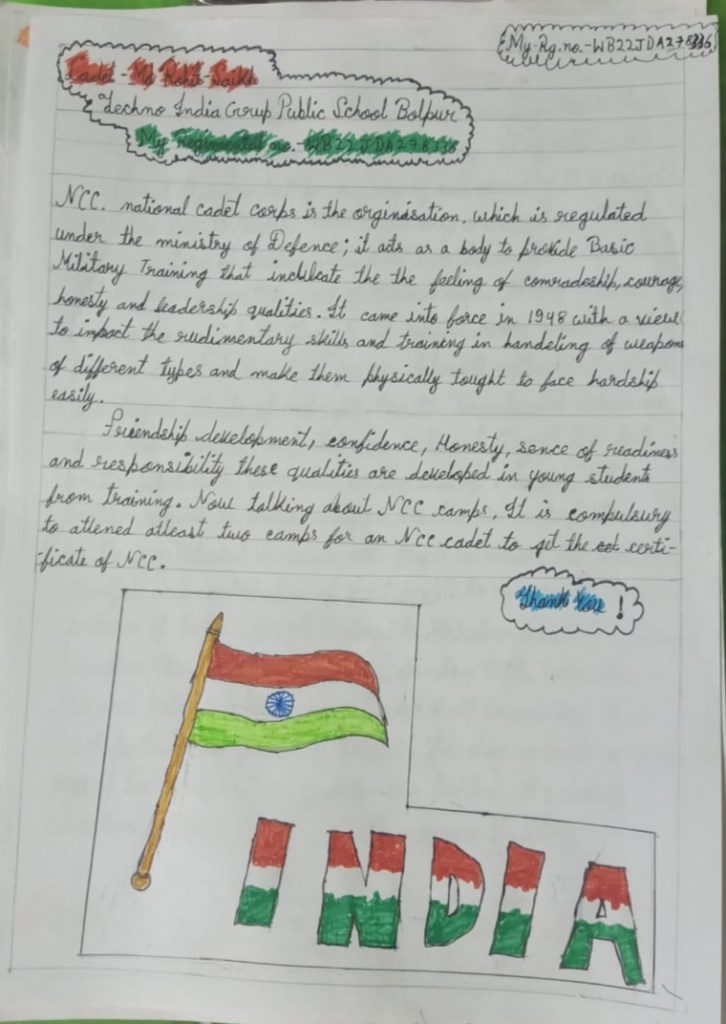 My Rg.no.-WB22JDA278336
Cadet - Md Rohit-Saikh
Techno India Group Public School Bolpur
My Regimental no.-WB22JDA278336
NCC. national cadet corps is the orginisation, which is regulated
under the ministry of Defence; it acts as a body to provide Basic
Military Training that inclulcate the the feeling of comradeship, courage,
honesty and leadership qualities. It came into force in 1948 with a view
to impact the rudimentary skills and training in handeling of weapons
of different types and make them physically tought to face hardship
easily.
Friendship development, confidence, Honesty, sence of readiness
and responsibility these qualities are developed in young students
from training. Now talking about NCC camps, It is compulsury
to attened atleast two camps for an NCC cadet to get the certi-
-ficate of NCC.
Thank You !
INDIA